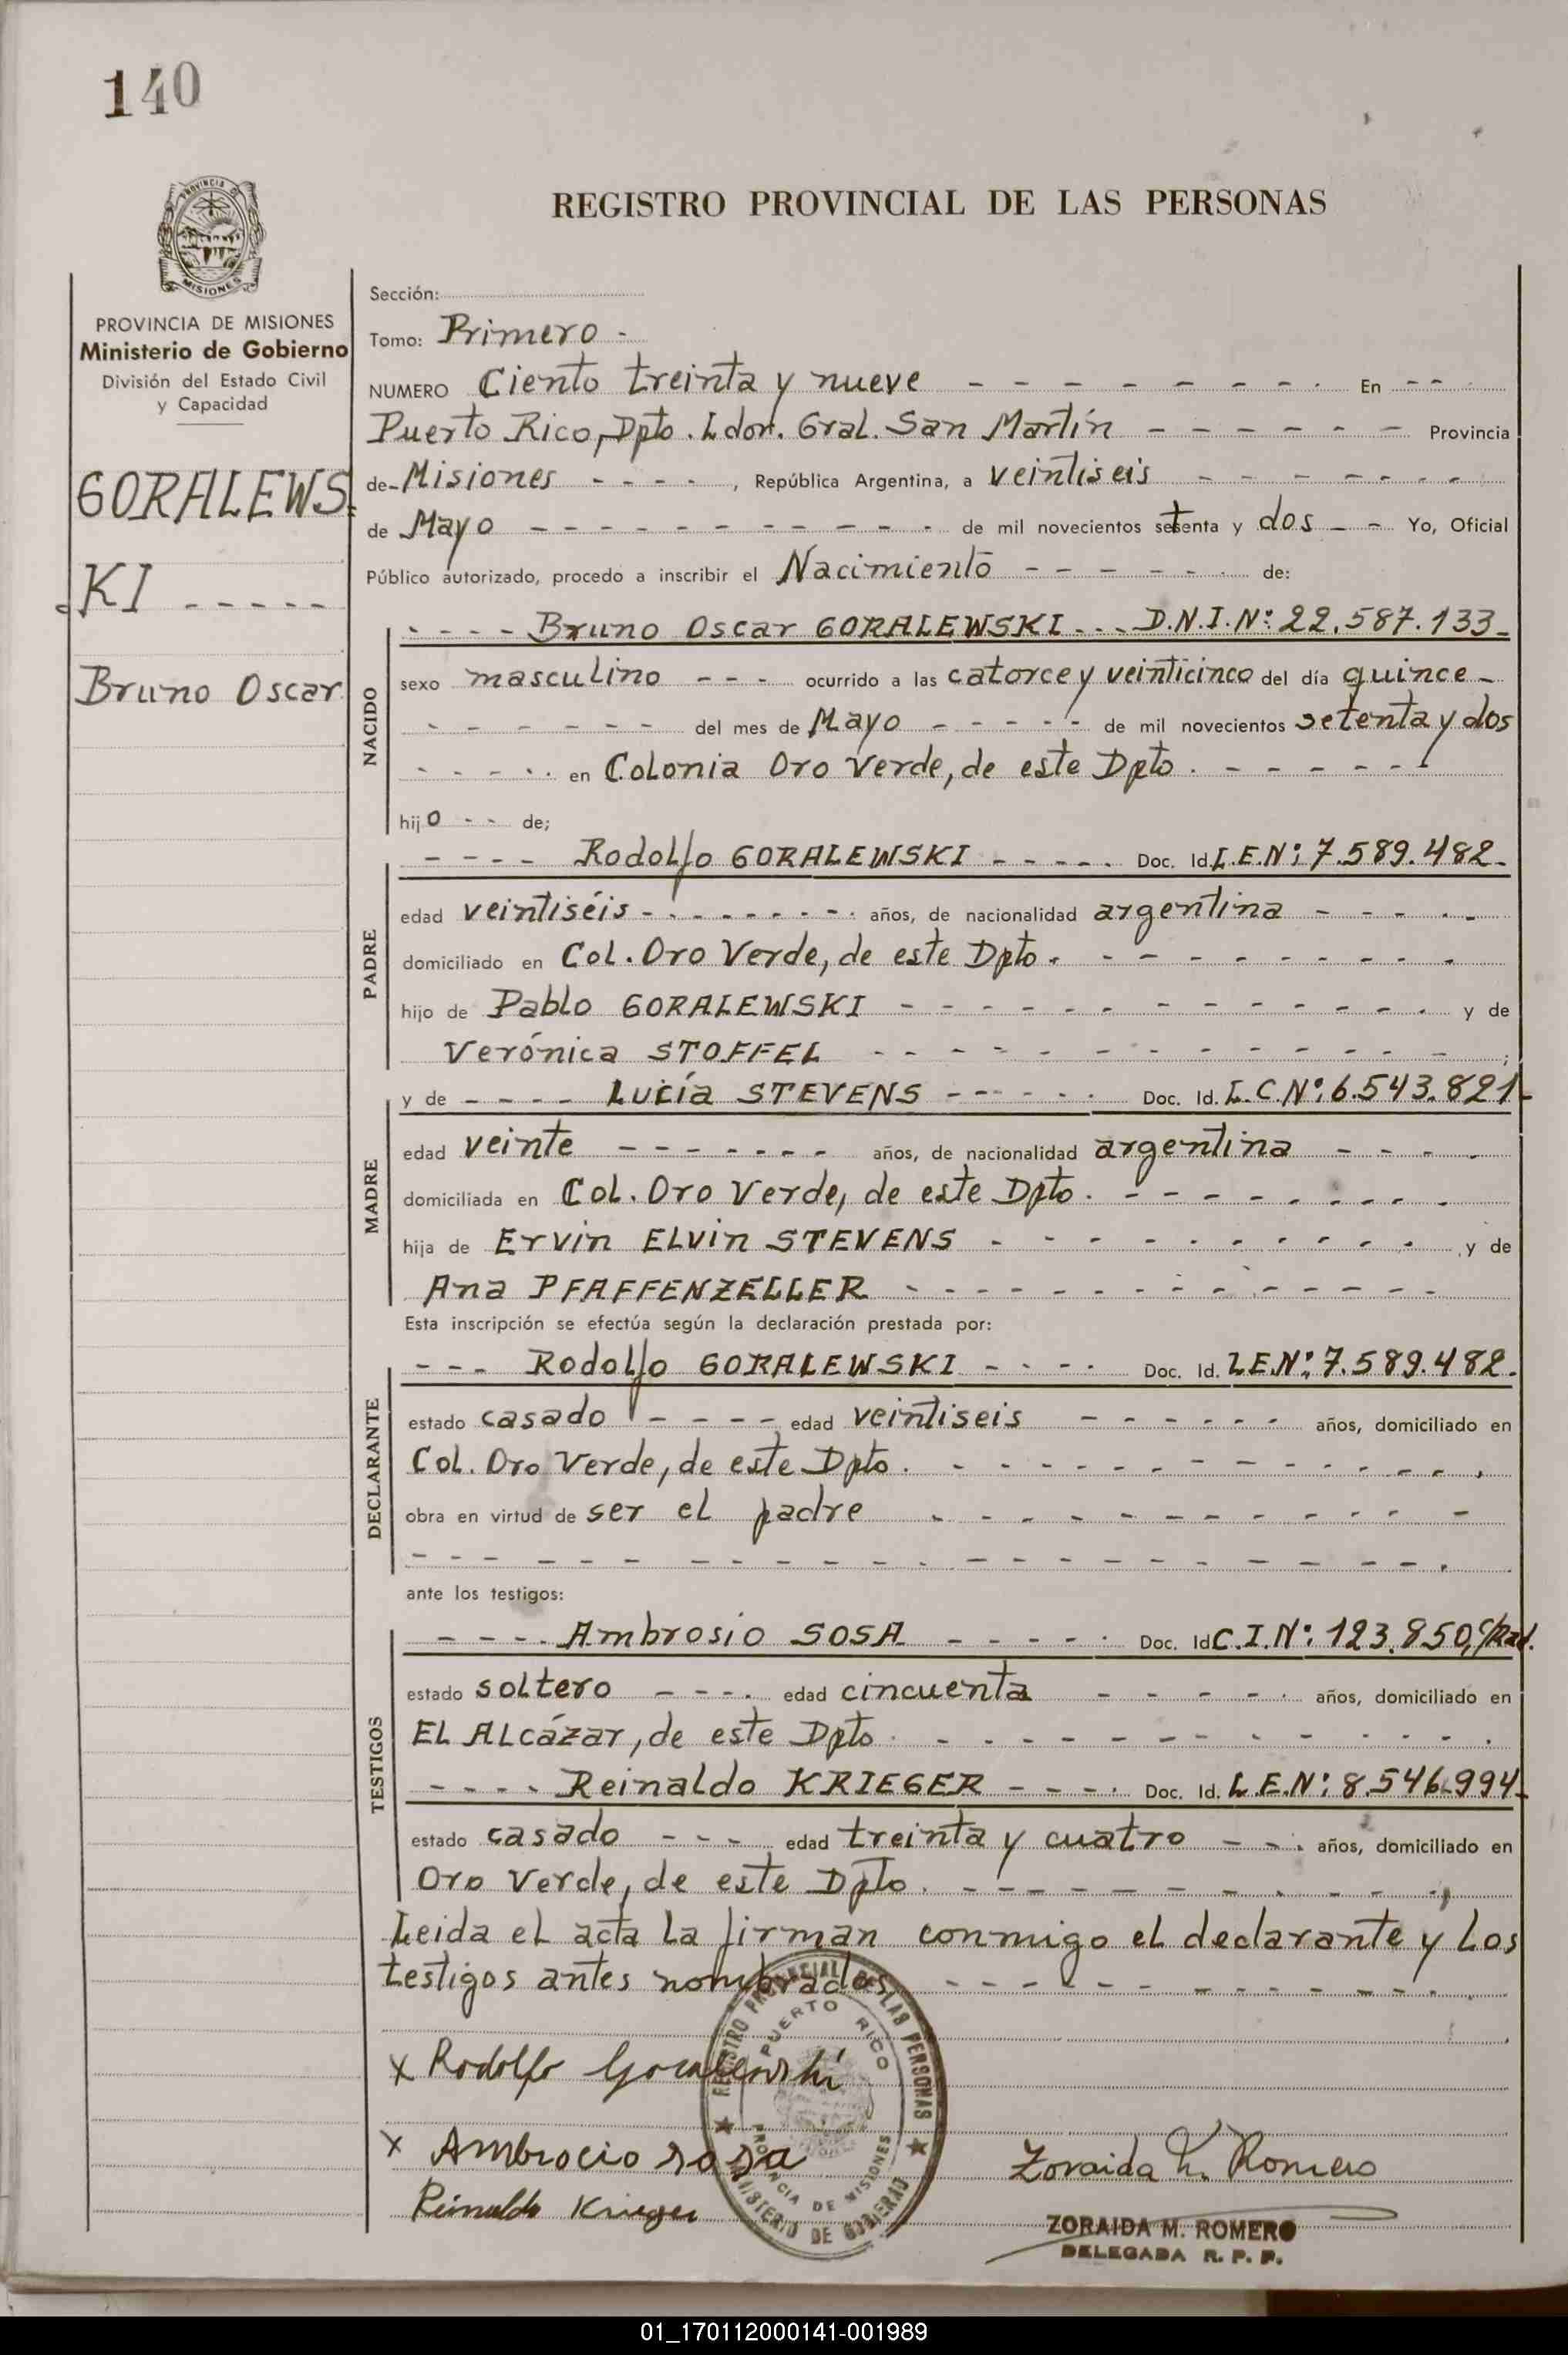 140
PROVINCIA DE
MISIONES
PROVINCIA DE MISIONES
Ministerio de Gobierno
División del Estado Civil
y Capacidad
GORALEWS-
KI - - - - -
Bruno Oscar
REGISTRO PROVINCIAL DE LAS PERSONAS
Sección:
Tomo: Primero -
NUMERO Ciento treinta y nueve - - - - - - - - En - -
Puerto Rico, Dpto. Ldor. Gral. San Martín - - - - - - Provincia
de- Misiones - - - - , República Argentina, a veintiseis - - - - - - -
de Mayo - - - - - - - - - de mil novecientos setenta y dos - - Yo, Oficial
Público autorizado, procedo a inscribir el Nacimiento - - - - - - de:
- - - - Bruno Oscar GORALEWSKI - - - D.N.I. Nº: 22.587.133-
NACIDO
sexo masculino - - - ocurrido a las catorce y veinticinco del día quince -
- - - - - - del mes de Mayo - - - - - de mil novecientos setenta y dos
- - - - - en Colonia Oro Verde, de este Dpto. - - - - - -
hijo - - de;
- - - - Rodolfo GORALEWSKI - - - - - Doc. Id. L.E.Nº: 7.589.482-
PADRE
edad veintiséis - - - - - - - - - años, de nacionalidad argentina - - - - -
domiciliado en Col. Oro Verde, de este Dpto. - - - - - - - - -
hijo de Pablo GORALEWSKI - - - - - - - - - - - - - y de
Verónica STOFFEL - - - - - - - - - - - - - - ;
y de - - - - Lucía STEVENS - - - - - - Doc. Id. L.C.Nº: 6.543.821-
MADRE
edad veinte - - - - - - - años, de nacionalidad argentina - - - -
domiciliada en Col. Oro Verde, de este Dpto. - - - - - - - - -
hija de Ervin ELvin STEVENS - - - - - - - - - - y de
Ana PFAFFENZELLER - - - - - - - - - - - - -
Esta inscripción se efectúa según la declaración prestada por:
- - - Rodolfo GORALEWSKI - - - - Doc. Id. L.E.Nº: 7.589.482-
DECLARANTE
estado casado - - - - edad veintiseis - - - - - - años, domiciliado en
Col. Oro Verde, de este Dpto. - - - - - - - - - - - - - -
obra en virtud de ser el padre - - - - - - - - - - - -
- - - - - - - - - - - - - - - - - - - - - -
ante los testigos:
- - - - Ambrosio SOSA - - - - - Doc. Id C.I.Nº: 123.850,
TESTIGOS
estado soltero - - - - edad cincuenta - - - - - años, domiciliado en
EL ALcázar, de este Dpto. - - - - - - - - - - - - -
- - - - Reinaldo KRIEGER - - - - Doc. Id. L.E.Nº: 8.546.994-
estado casado - - - edad treinta y cuatro - - - años, domiciliado en
Oro Verde, de este Dpto. - - - - - - - - - - - ,
Leida el acta la firman conmigo el declarante y los
testigos antes nombrados. - - - - - - - - - - - -
x Rodolfo Goralewski
x Ambrocio sosa
Reinaldo Krieger
REGISTRO PROVINCIAL DE LAS PERSONAS
PUERTO RICO
PROVINCIA DE MISIONES
MINISTERIO DE GOBIERNO
Zoraida M. Romero
ZORAIDA M. ROMERO
DELEGADA R. P. P.
01_170112000141-001989